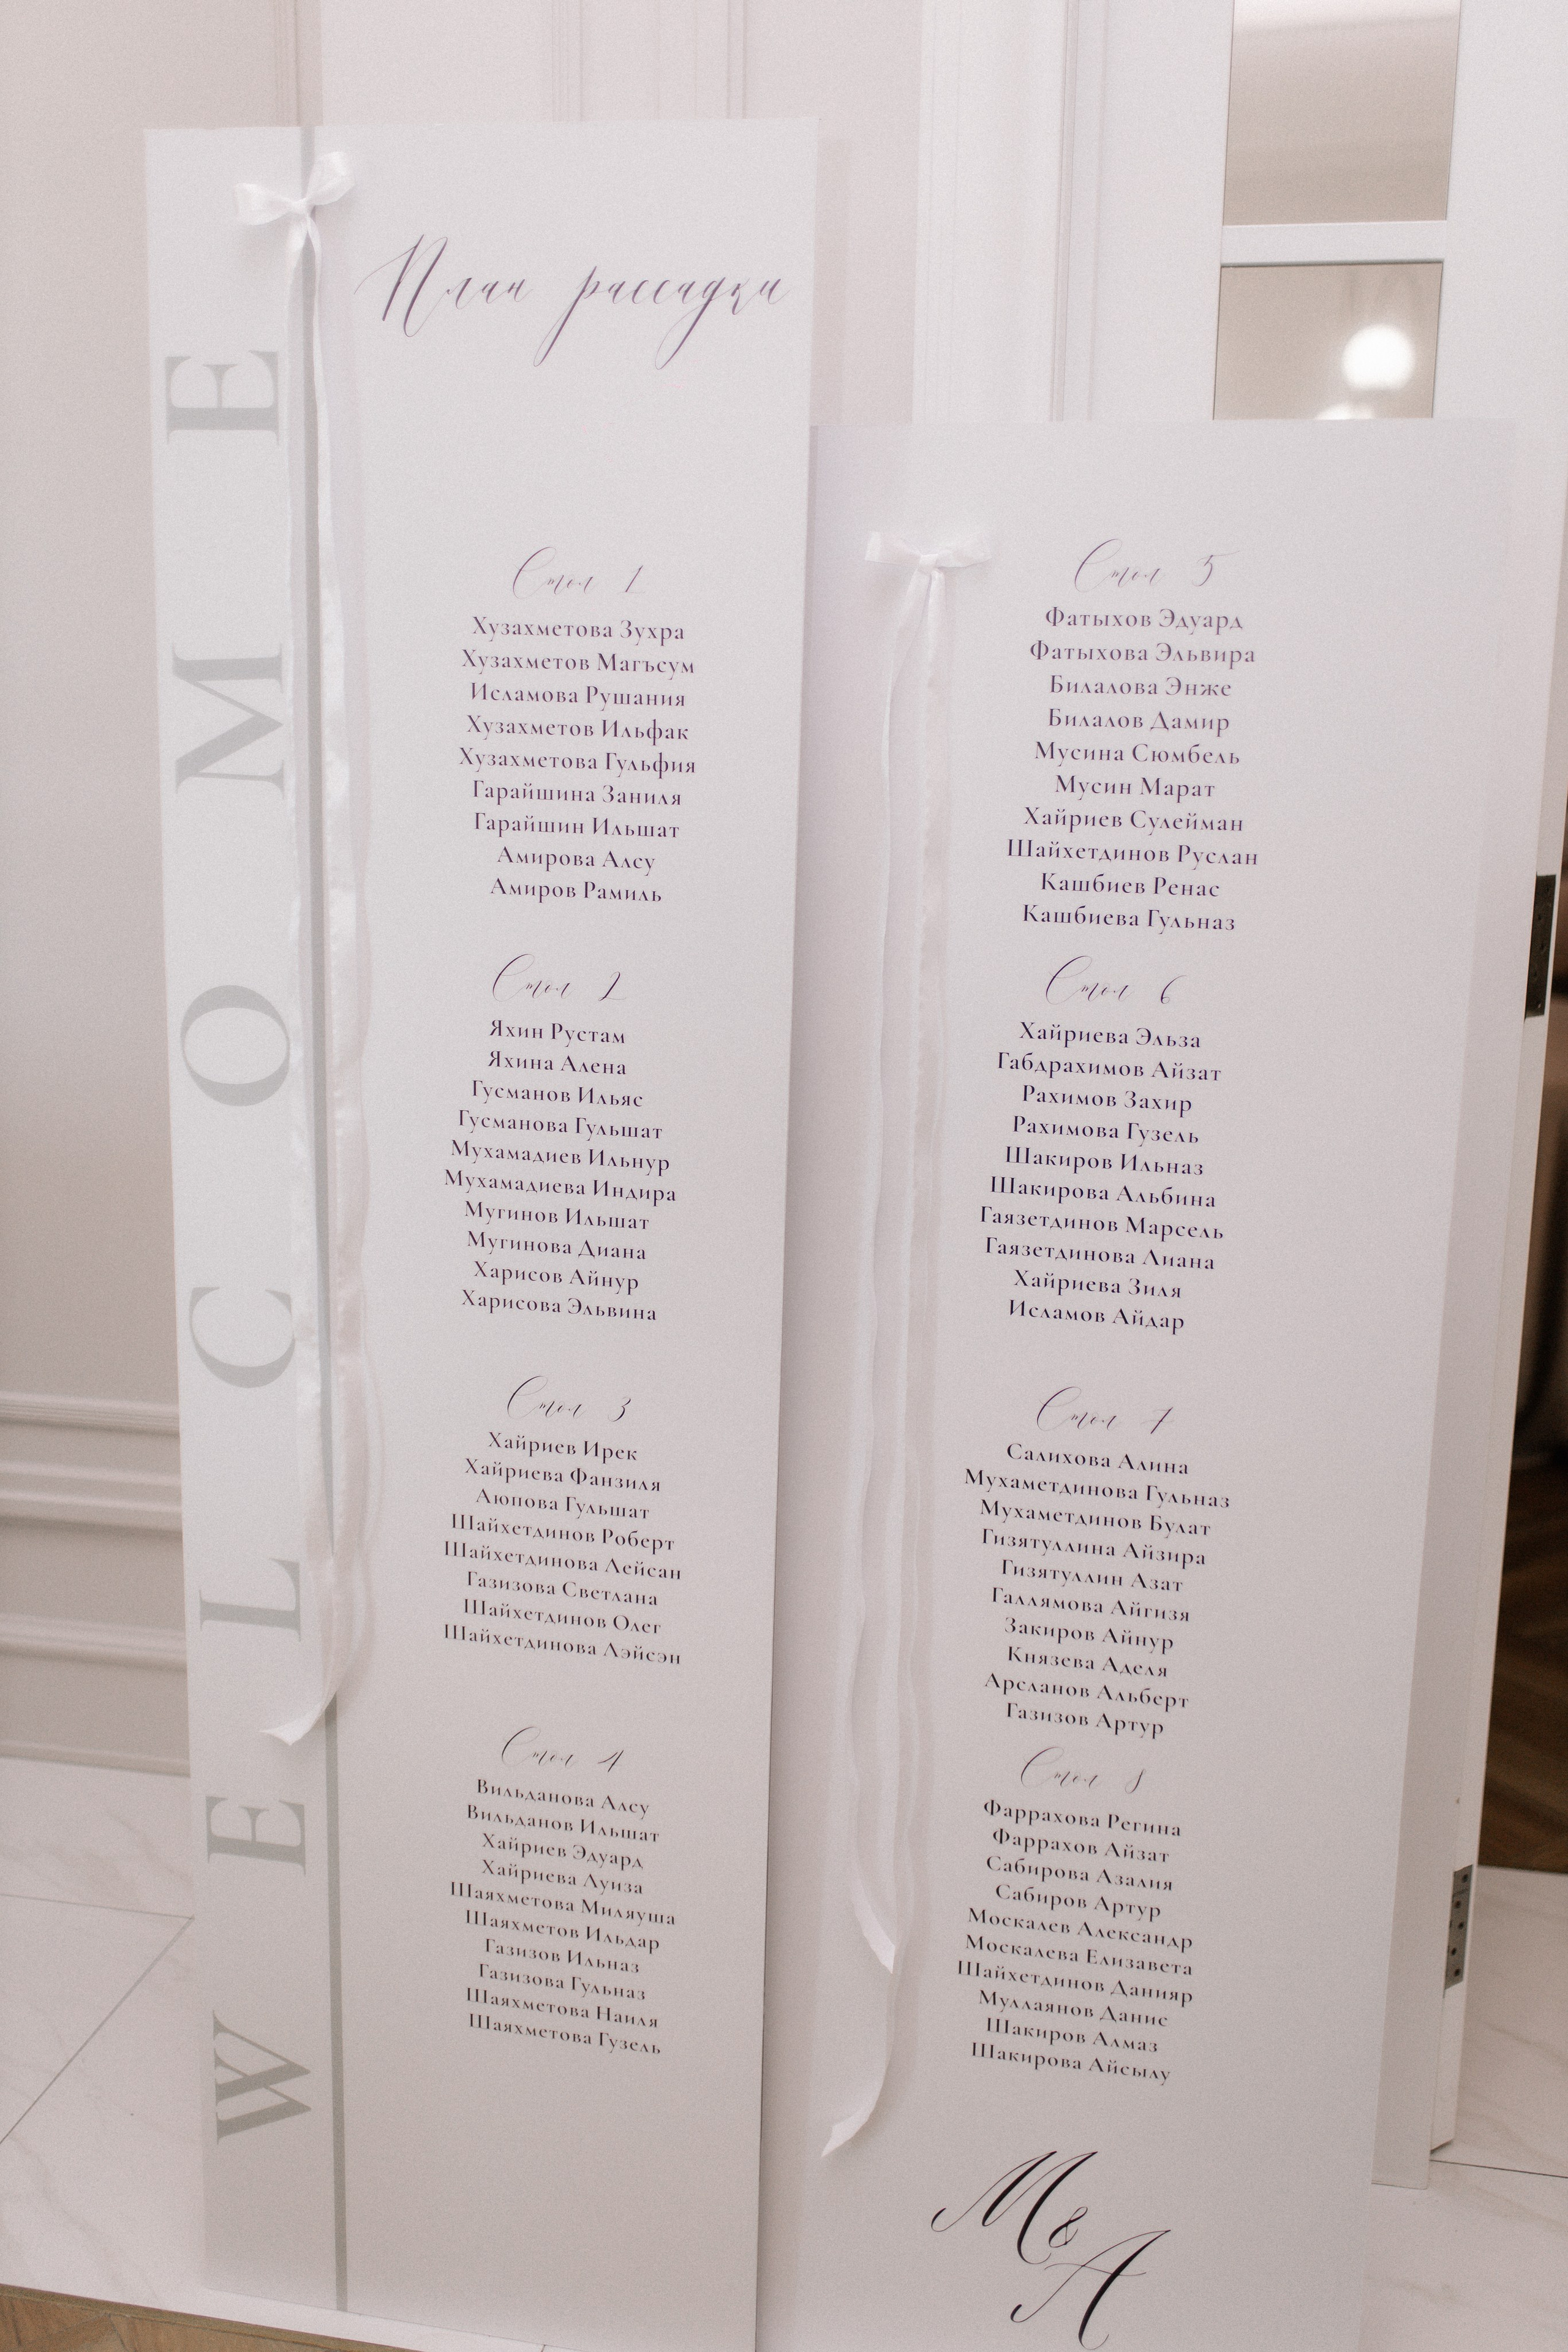 WELCOME
План рассадки
Стол 1
Хузахметова Зухра
Хузахметов Магъсум
Исламова Рушания
Хузахметов Ильфак
Хузахметова Гульфия
Гарайшина Заниля
Гарайшин Ильшат
Амирова Алсу
Амиров Рамиль
Стол 2
Яхин Рустам
Яхина Алена
Гусманов Ильяс
Гусманова Гульшат
Мухамадиев Ильнур
Мухамадиева Индира
Мугинов Ильшат
Мугинова Диана
Харисов Айнур
Харисова Эльвина
Стол 3
Хайриев Ирек
Хайриева Фанзиля
Аюпова Гульшат
Шайхетдинов Роберт
Шайхетдинова Лейсан
Газизова Светлана
Шайхетдинов Олег
Шайхетдинова Лэйсэн
Стол 4
Вильданова Алсу
Вильданов Ильшат
Хайриев Эдуард
Хайриева Луиза
Шаяхметова Миляуша
Шаяхметов Ильдар
Газизов Ильназ
Газизова Гульназ
Шаяхметова Наиля
Шаяхметова Гузель
Стол 5
Фатыхов Эдуард
Фатыхова Эльвира
Билалова Энже
Билалов Дамир
Мусина Сюмбель
Мусин Марат
Хайриев Сулейман
Шайхетдинов Руслан
Кашбиев Ренас
Кашбиева Гульназ
Стол 6
Хайриева Эльза
Габдрахимов Айзат
Рахимов Захир
Рахимова Гузель
Шакиров Ильназ
Шакирова Альбина
Гаязетдинов Марсель
Гаязетдинова Лиана
Хайриева Зиля
Исламов Айдар
Стол 7
Салихова Алина
Мухаметдинова Гульназ
Мухаметдинов Булат
Гизятуллина Айзира
Гизятуллин Азат
Галлямова Айгизя
Закиров Айнур
Князева Аделя
Арсланов Альберт
Газизов Артур
Стол 8
Фаррахова Регина
Фаррахов Айзат
Сабирова Азалия
Сабиров Артур
Москалев Александр
Москалева Елизавета
Шайхетдинов Данияр
Муллаянов Данис
Шакиров Алмаз
Шакирова Айсылу
M&A